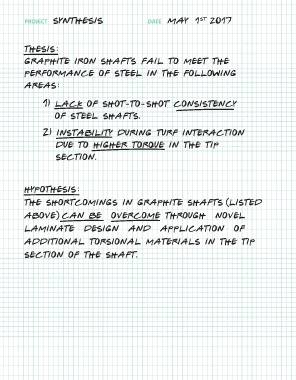 PROJECT SYNTHESIS DATE MAY 1ST 2017
THESIS:
GRAPHITE IRON SHAFTS FAIL TO MEET THE
PERFORMANCE OF STEEL IN THE FOLLOWING
AREAS:
1) LACK OF SHOT-TO-SHOT CONSISTENCY
OF STEEL SHAFTS.
2) INSTABILITY DURING TURF INTERACTION
DUE TO HIGHER TORQUE IN THE TIP
SECTION.
HYPOTHESIS:
THE SHORTCOMINGS IN GRAPHITE SHAFTS (LISTED
ABOVE) CAN BE OVERCOME THROUGH NOVEL
LAMINATE DESIGN AND APPLICATION OF
ADDITIONAL TORSIONAL MATERIALS IN THE TIP
SECTION OF THE SHAFT.